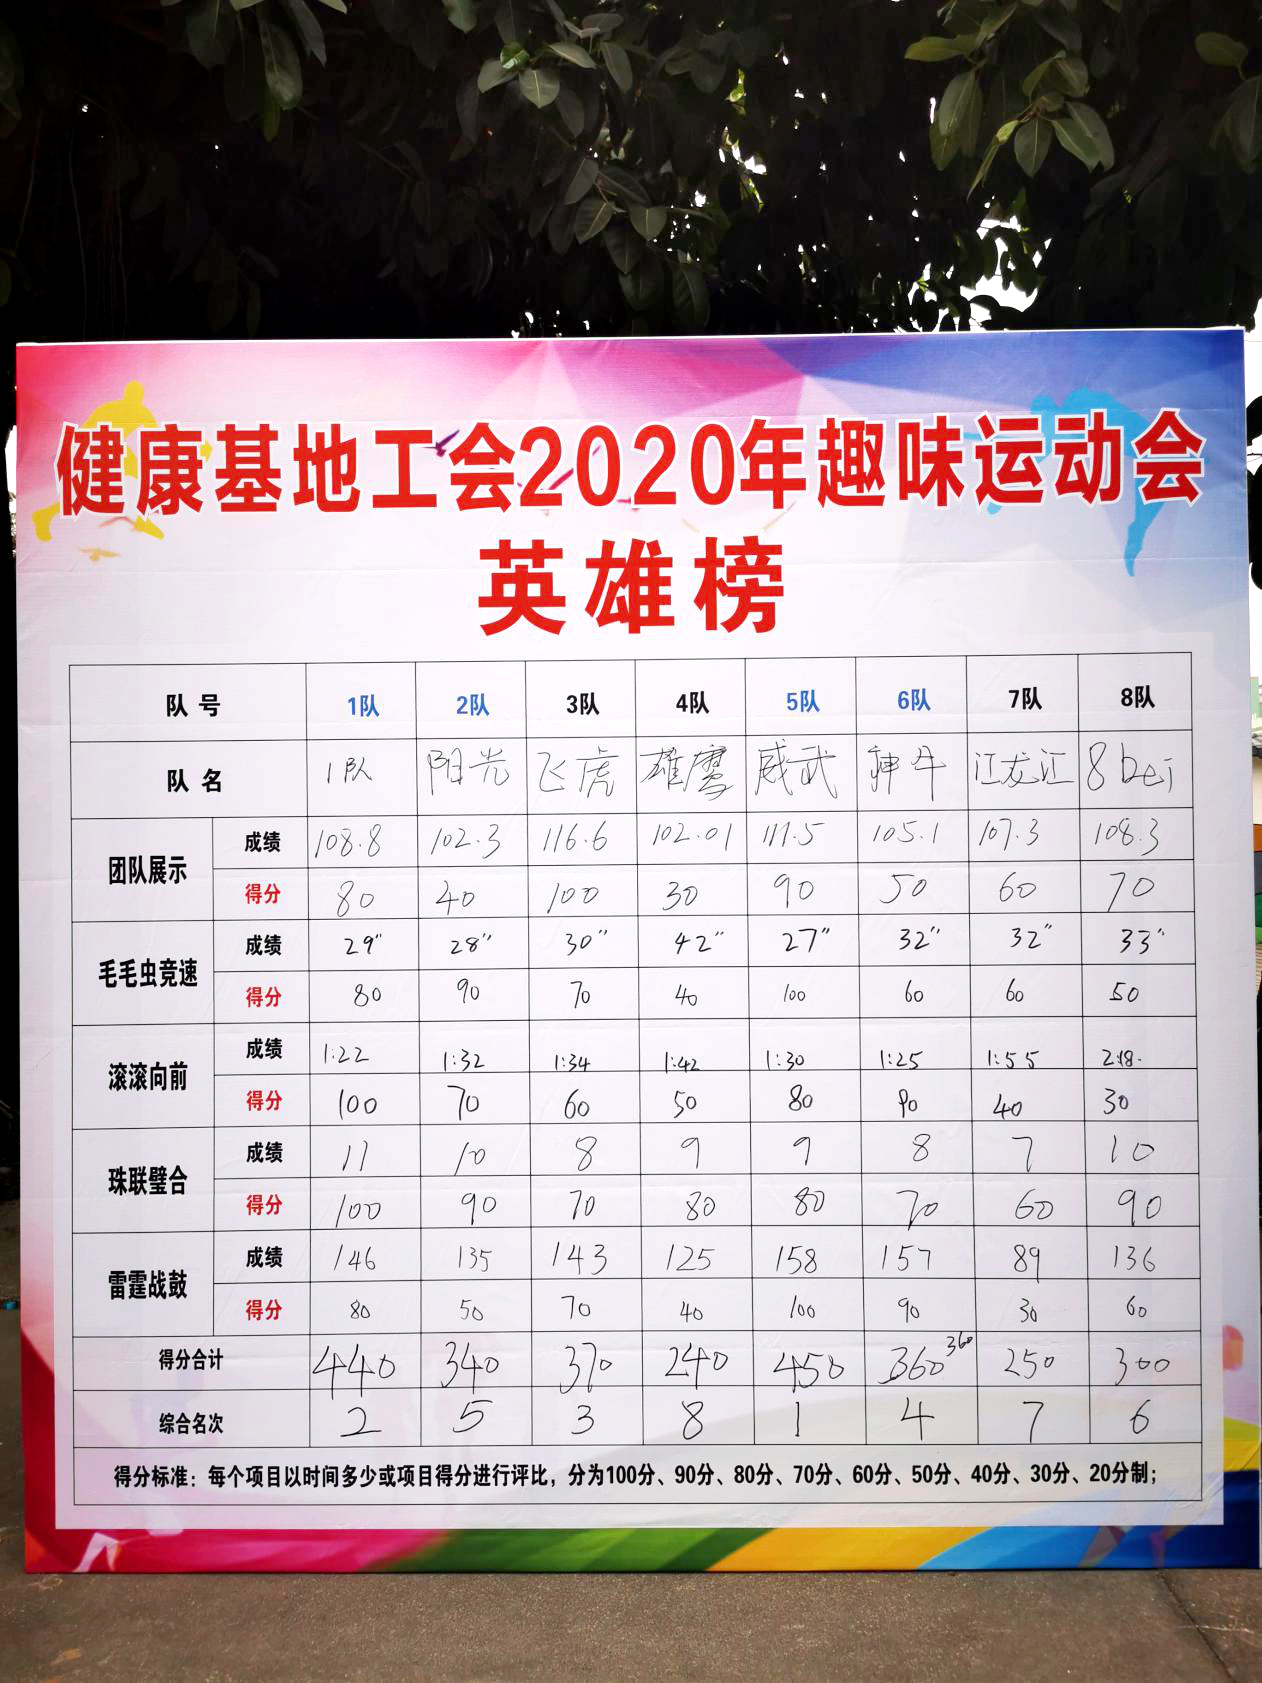 健康基地工会2020年趣味运动会
英雄榜
队号 1队 2队 3队 4队 5队 6队 7队 8队
队名 1队 阳光 飞虎 雄鹰 威武 神牛 江龙江 8bei
团队展示
成绩 108.8 102.3 116.6 102.01 111.5 105.1 107.3 108.3
得分 80 40 100 30 90 50 60 70
毛毛虫竞速
成绩 29" 28" 30" 42" 27" 32" 32" 33"
得分 80 90 70 40 100 60 60 50
滚滚向前
成绩 1:22 1:32 1:34 1:42 1:30 1:25 1:55 2:18
得分 100 70 60 50 80 90 40 30
珠联璧合
成绩 11 10 8 9 9 8 7 10
得分 100 90 70 80 80 70 60 90
雷霆战鼓
成绩 146 135 143 125 158 157 89 136
得分 80 50 70 40 100 90 30 60
得分合计 440 340 370 240 450 360 360 250 300
综合名次 2 5 3 8 1 4 7 6
得分标准：每个项目以时间多少或项目得分进行评比，分为100分、90分、80分、70分、60分、50分、40分、30分、20分制；